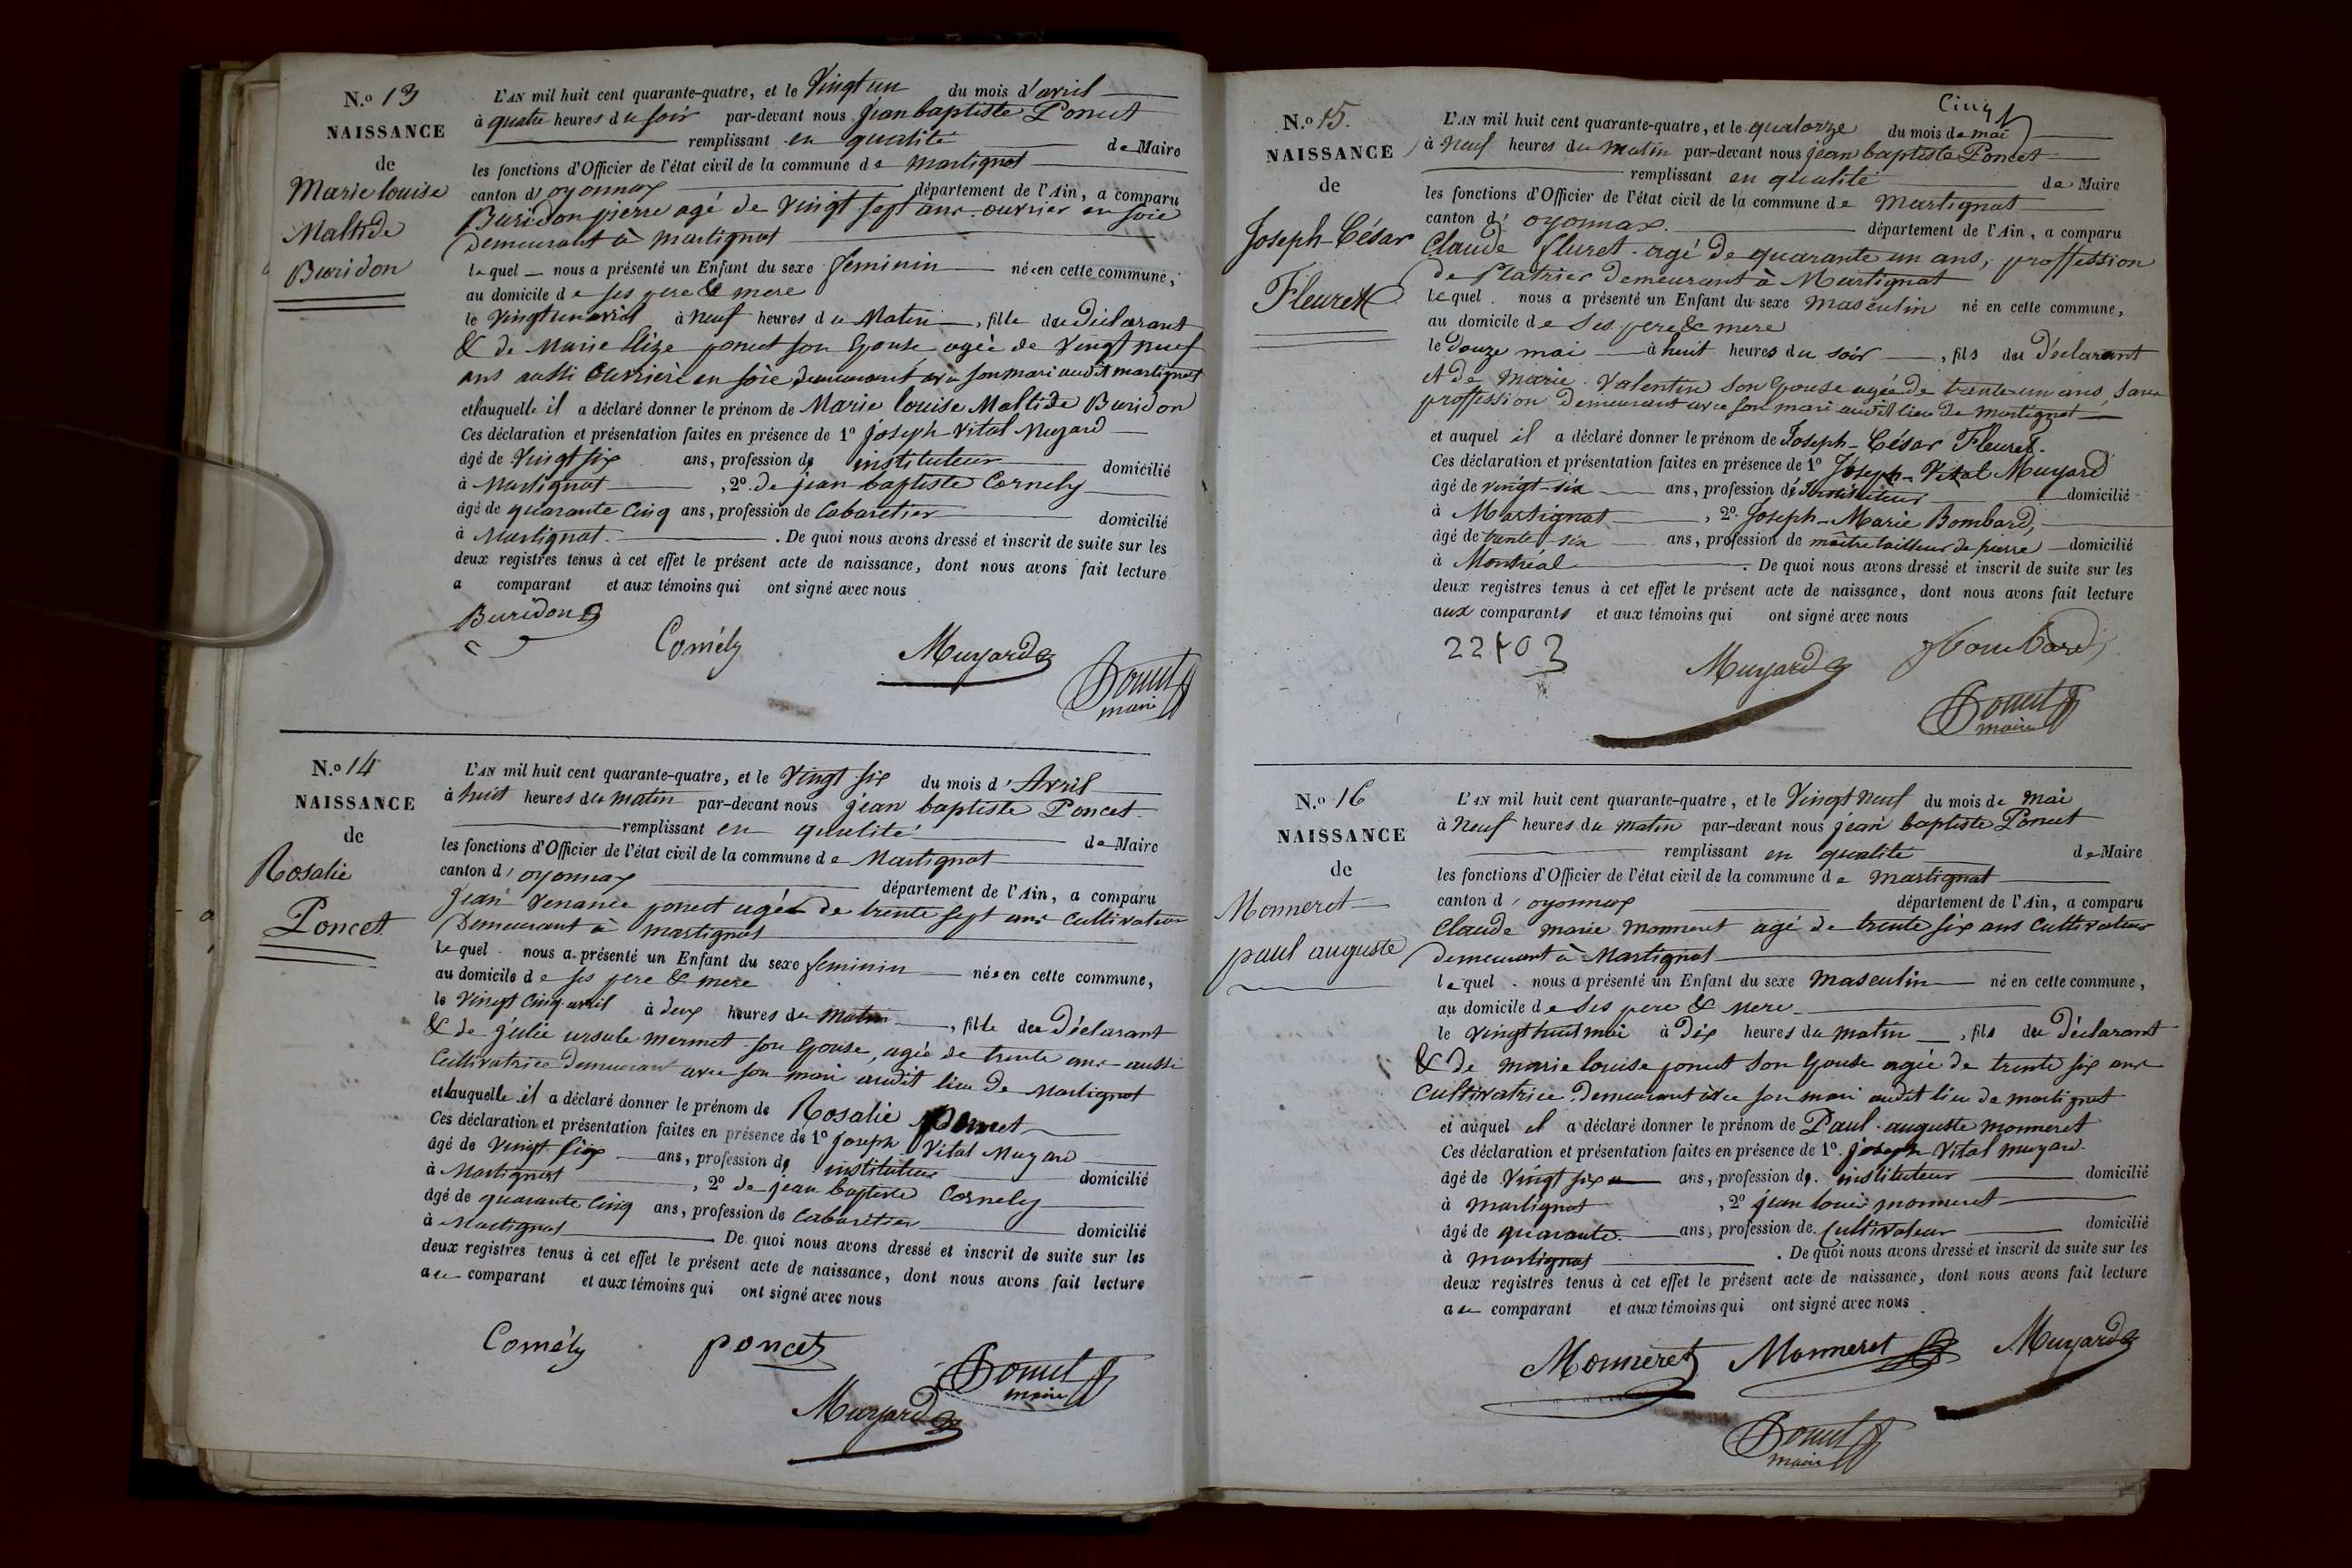 N.o 13
NAISSANCE
de
Marie louise
Maltide
Buridon
L'AN mil huit cent quarante-quatre, et le Vingt un du mois d'avril
à quatre heures du soir par-devant nous jean baptiste Poncet
remplissant en qualité de Maire
les fonctions d'Officier de l'état civil de la commune de Martignat
canton d'oyonnax département de l'Ain, a comparu
Buridon pierre agé de Vingt sept ans ouvrier en soie
demeurant à Martignat
lequel nous a présenté un Enfant du sexe feminin née en cette commune,
au domicile de ses pere & mere
le vingt un avril à neuf heures du Matin, fille du Déclarant
& de Marie Elize poncet son Epouse agée de Vingt neuf
ans aussi Ouvrière en soie demeurant avec son mari audit martignat
et lauquelle il a déclaré donner le prénom de Marie louise Maltide Buridon
Ces déclaration et présentation faites en présence de 1o joseph Vital Muyard
âgé de Vingt six ans, profession d' instituteur domicilié
à Martignat, 2o de jean baptiste Cornely
âgé de quarante Cinq ans, profession de Cabaretier domicilié
à Martignat. De quoi nous avons dressé et inscrit de suite sur les
deux registres tenus à cet effet le présent acte de naissance, dont nous avons fait lecture
a comparant et aux témoins qui ont signé avec nous
Buridon
Cornély
Muyard
Poncet
maire
N.o 14
NAISSANCE
de
Rosalie
Poncet
L'AN mil huit cent quarante-quatre, et le Vingt six du mois d'Avril
à huit heures du matin par-devant nous jean baptiste Poncet
remplissant en qualité de Maire
les fonctions d'Officier de l'état civil de la commune de Martignat
canton d'oyonnax département de l'Ain, a comparu
jean Venance poncet agé de trente sept ans cultivateur
Demeurant à martignat
lequel nous a présenté un Enfant du sexe feminin née en cette commune,
au domicile de ses pere & mere
le Vingt Cinq avril à deux heures du Matin, fille du Déclarant
& de julie ursule mermet son Epouse, agée de trente ans aussi
Cultivatrice Demeurant avec son mari audit lieu de Martignat
et lauquelle il a déclaré donner le prénom de Rosalie Poncet
Ces déclaration et présentation faites en présence de 1o joseph Vital Muyard
âgé de Vingt six ans, profession d' instituteur domicilié
à Martignat, 2o de jean baptiste Cornely
âgé de quarante Cinq ans, profession de Cabaretier domicilié
à Martignat De quoi nous avons dressé et inscrit de suite sur les
deux registres tenus à cet effet le présent acte de naissance, dont nous avons fait lecture
au comparant et aux témoins qui ont signé avec nous
Cornély
poncet
Poncet
maire
Muyard
Cinq
N.o 15.
NAISSANCE
de
Joseph-César
Fleuret
L'AN mil huit cent quarante-quatre, et le quatorze du mois de mai
à neuf heures du matin par-devant nous jean baptiste Poncet
remplissant en qualité de Maire
les fonctions d'Officier de l'état civil de la commune de Martignat
canton d' oyonnax. département de l'Ain, a comparu
Claude fluret agé de quarante un ans, proffession
de Platrier demeurant à Martignat
lequel nous a présenté un Enfant du sexe masculin né en cette commune,
au domicile de ses pere & mere
le douze mai à huit heures du soir, fils du Déclarant
et de Marie Valentin son Epouse agée de trente un ans, sans
proffession Demeurant avec son mari audit lieu de Martignat
et auquel il a déclaré donner le prénom de Joseph-César Fleuret.
Ces déclaration et présentation faites en présence de 1o Joseph-Vital Muyard
âgé de vingt-six ans, profession d'Instituteur domicilié
à Martignat, 2o Joseph-Marie Bombard,
âgé de trente-six ans, profession de maître tailleur de pierre domicilié
à Montréal. De quoi nous avons dressé et inscrit de suite sur les
deux registres tenus à cet effet le présent acte de naissance, dont nous avons fait lecture
aux comparants et aux témoins qui ont signé avec nous
Muyard
Bombard
Poncet
maire
N.o 16
NAISSANCE
de
Monneret
paul auguste
L'AN mil huit cent quarante-quatre, et le Vingt neuf du mois de mai
à neuf heures du matin par-devant nous jean baptiste Poncet
remplissant en qualité de Maire
les fonctions d'Officier de l'état civil de la commune de martignat
canton d'oyonnax département de l'Ain, a comparu
Claude marie monneret agé de trente six ans Cultivateur
demeurant à Martignat
lequel nous a présenté un Enfant du sexe Masculin né en cette commune,
au domicile de ses pere & mere
le vingt huit mai à dix heures du matin, fils du Déclarant
& de marie louise poncet son Epouse agée de trente six ans
Cultivatrice demeurant avec son mari audit lieu de martignat
et auquel il a déclaré donner le prénom de Paul auguste monneret
Ces déclaration et présentation faites en présence de 1o. joseph Vital muyard
âgé de Vingt six ans, profession d'. instituteur domicilié
à martignat, 2o jean louis monneret
âgé de quarante ans, profession de Cultivateur domicilié
à martignat. De quoi nous avons dressé et inscrit de suite sur les
deux registres tenus à cet effet le présent acte de naissance, dont nous avons fait lecture
au comparant et aux témoins qui ont signé avec nous
Monneret
Monneret
Muyard
Poncet
maire